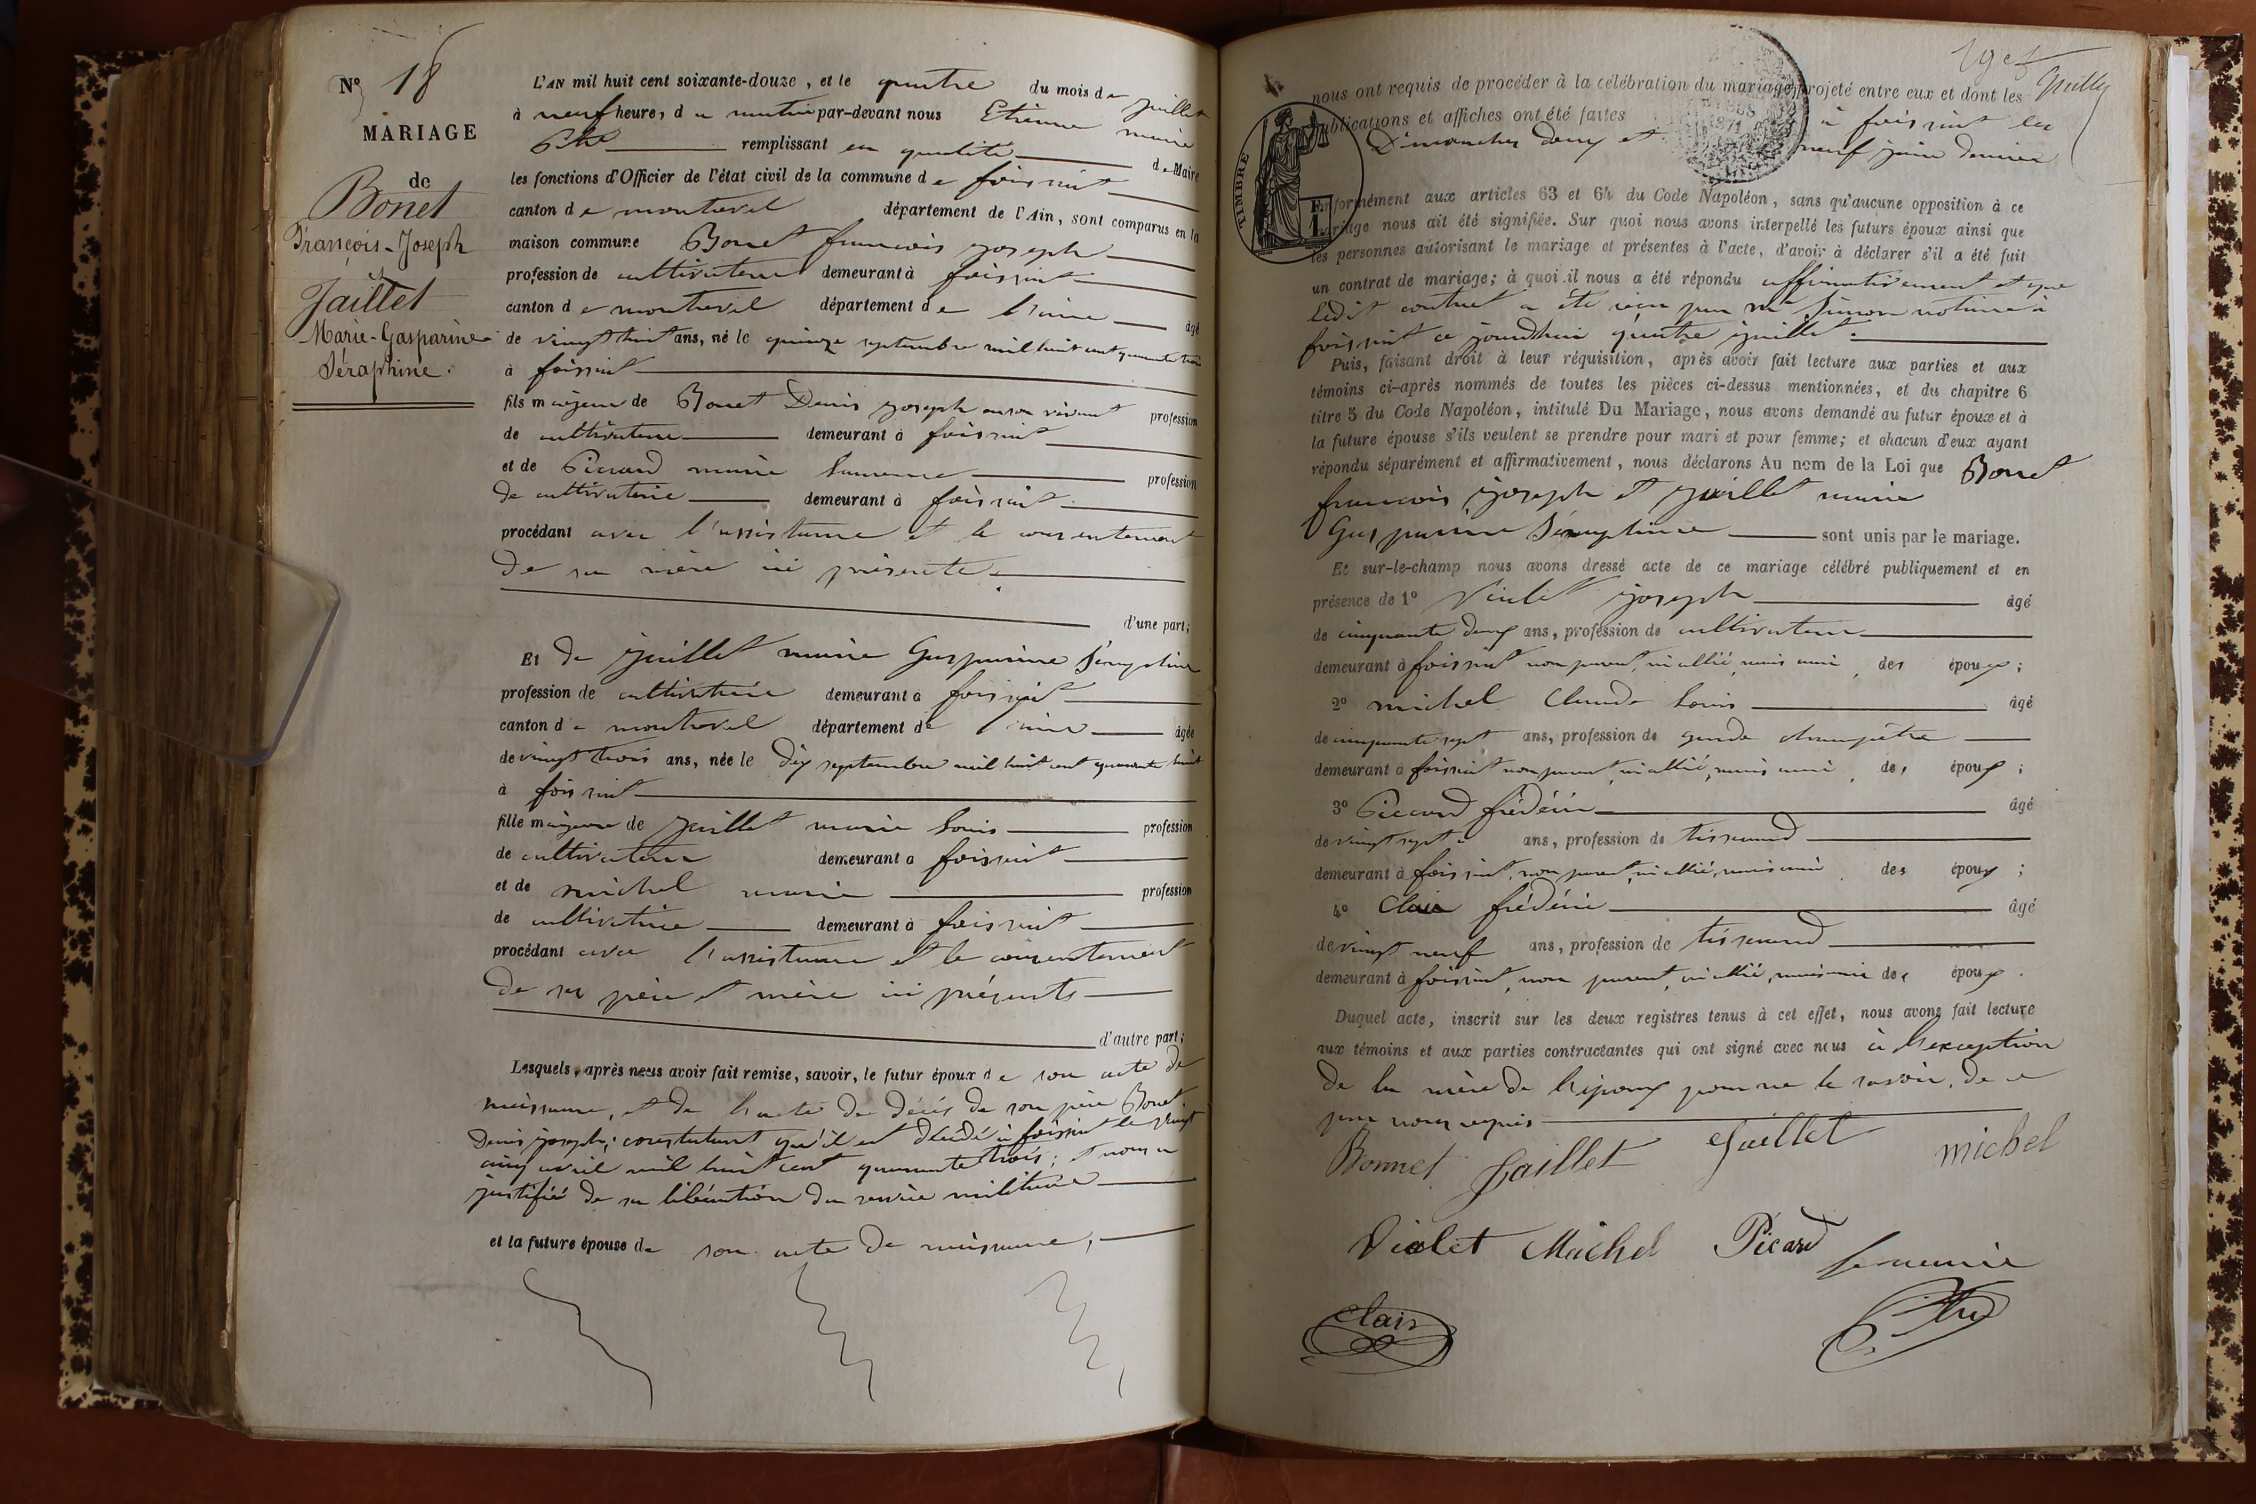 N° 18
MARIAGE
de
Bonet
François-Joseph
et
Jaillet
Marie-Gasparine
Séraphine.
L'AN mil huit cent soixante-douze, et le quatre du mois de juillet
à neuf heures, du matin par-devant nous Etienne marie
remplissant en qualité de Maire
les fonctions d'Officier de l'état civil de la commune de foissiat
canton de montrevel département de l'Ain, sont comparus en la
maison commune Bonet francois joseph
profession de cultivateur demeurant à foissiat
canton de montrevel département de l'ain âgé
de vingt huit ans, né le quinze septembre mil huit cent quarante trois
à foissiat
fils majeur de Bonet Denis joseph en son vivant profession
de cultivateur demeurant à foissiat
et de Piccard marie laurence profession
de cultivatrice demeurant à foissiat
procédant avec l'assistance et le consentement
de sa mère ici présente.
d'une part;
Et de jaillet marie Gasparine Séraphine
profession de cultivatrice demeurant à foissiat
canton de montrevel département de l'ain âgée
de vingt trois ans, née le dix septembre mil huit cent quarante huit
à foissiat
fille majeure de jaillet marie louis profession
de cultivateur demeurant à foissiat
et de michel marie profession
de cultivatrice demeurant à foissiat
procédant avec l'assistance et le consentement
de ses père et mère ici présents
d'autre part;
Lesquels, après nous avoir fait remise, savoir, le futur époux de son acte de
naissance, et de l'acte de décès de son père Bonet
Denis joseph; constatant qu'il est décédé à foissiat le vingt
cinq avril mil huit cent quarante trois; et nous a
justifié de sa libération du service militaire
et la future épouse de son acte de naissance,
nous ont requis de procéder à la célébration du mariage projeté entre eux et dont les
publications et affiches ont été faites à foissiat les
Dimanches deux et neuf juin dernier
TIMBRE
conformément aux articles 63 et 64 du Code Napoléon, sans qu'aucune opposition à ce
mariage nous ait été signifiée. Sur quoi nous avons interpellé les futurs époux ainsi que
les personnes autorisant le mariage et présentes à l'acte, d'avoir à déclarer s'il a été fait
un contrat de mariage; à quoi il nous a été répondu affirmativement et que
ledit contrat a été reçu par me Simon notaire à
foissiat ce jourd'hui quatre juillet.
Puis, faisant droit à leur réquisition, après avoir fait lecture aux parties et aux
témoins ci-après nommés de toutes les pièces ci-dessus mentionnées, et du chapitre 6
titre 5 du Code Napoléon, intitulé Du Mariage, nous avons demandé au futur époux et à
la future épouse s'ils veulent se prendre pour mari et pour femme; et chacun d'eux ayant
répondu séparément et affirmativement, nous déclarons Au nom de la Loi que Bonet
francois joseph et jaillet marie
Gasparine Séraphine sont unis par le mariage.
Et sur-le-champ nous avons dressé acte de ce mariage célébré publiquement et en
présence de 1° Violet joseph âgé
de cinquante deux ans, profession de cultivateur
demeurant à foissiat non parent, ni allié, mais ami, des époux;
2° michel Claude louis âgé
de cinquante sept ans, profession de garde champêtre
demeurant à foissiat non parent, ni allié, mais ami, des époux;
3° Piccard frédéric âgé
de vingt sept ans, profession de tisserand
demeurant à foissiat, non parent, ni allié, mais ami, des époux;
4° Clair frédéric âgé
de vingt neuf ans, profession de tisserand
demeurant à foissiat, non parent, ni allié, mais ami des époux.
Duquel acte, inscrit sur les deux registres tenus à cet effet, nous avons fait lecture
aux témoins et aux parties contractantes qui ont signé avec nous à l'exception
de la mère de l'époux pour ne le savoir, de ce
par nous requis
Bonnet Jaillet Jaillet michel
Violet Michel Picard
Clair